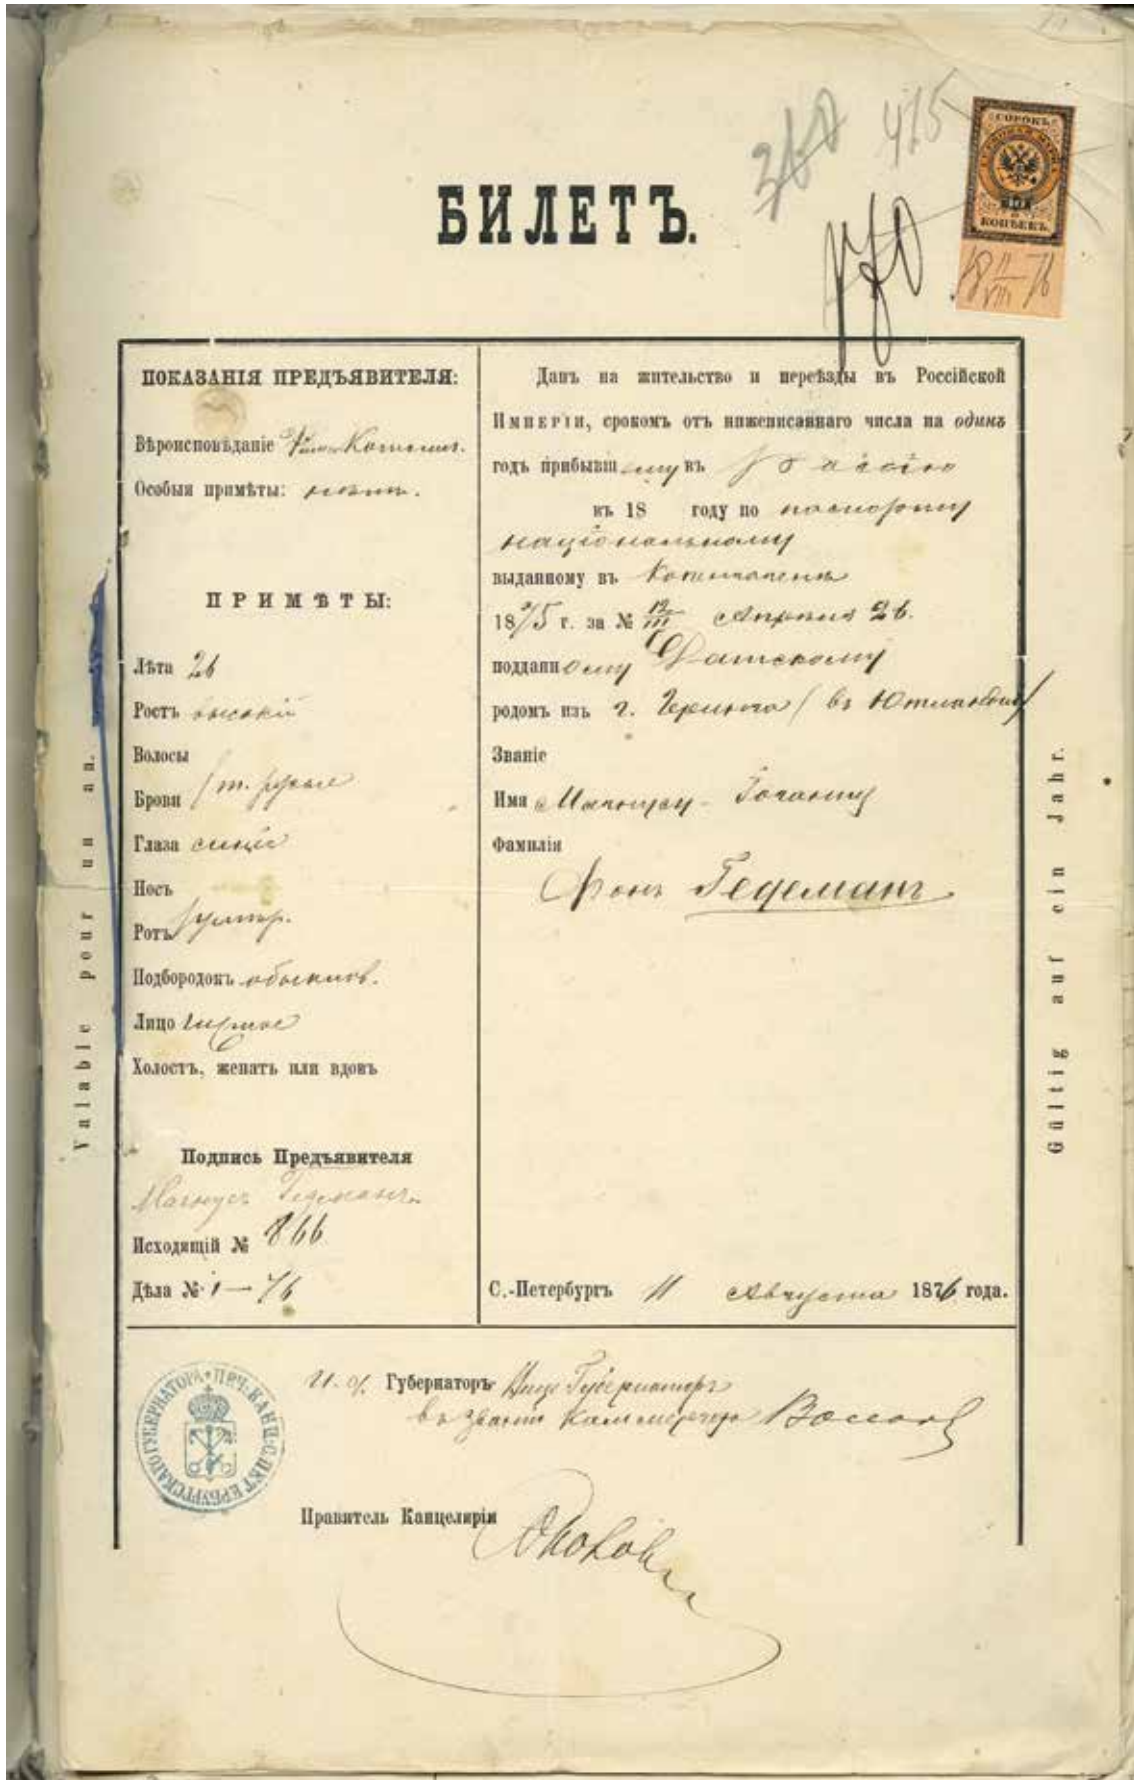 360 415
СОРОКЪ
ГЕРБОВАЯ МАРКА
40
КОПѢЕКЪ.
18 11/VIII 76
БИЛЕТЪ.
ПОКАЗАНІЯ ПРЕДЪЯВИТЕЛЯ:
Вѣроисповѣданіе Римско-Католич.
Особыя примѣты:
ПРИМѢТЫ:
Лѣта 26
Ростъ высокій
Волосы
Брови т. русые
Глаза синіе
Носъ
Ротъ умѣр.
Подбородокъ обыкнов.
Лицо чистое
Холостъ, женатъ или вдовъ
Подпись Предъявителя
Магнусъ Гедеманъ
Исходящій № 866
Дѣла № 1 — 76
Данъ на жительство и переѣзды въ Россійской
ИМПЕРІИ, срокомъ отъ нижеписаннаго числа на одинъ
годъ прибывшему въ Россію
въ 18 году по паспорту
національному
выданному въ Копенгагенѣ
1875 г. за № 12/III Апрѣля 26.
подданному Датскому
родомъ изъ г. Гернинга (въ Ютландіи)
Званіе
Имя Магнусу - Іоганну
Фамилія
Фонъ Гедеманъ
С.-Петербургъ 11 Августа 1876 года.
Valable pour un an.
Gültig auf ein Jahr.
И. д. Губернаторъ Вице Губернаторъ
въ званіи Камергера
Правитель Канцеляріи
ПЕЧ. КАНЦ. С. ПЕТЕРБУРГСКАГО ГУБЕРНАТОРА